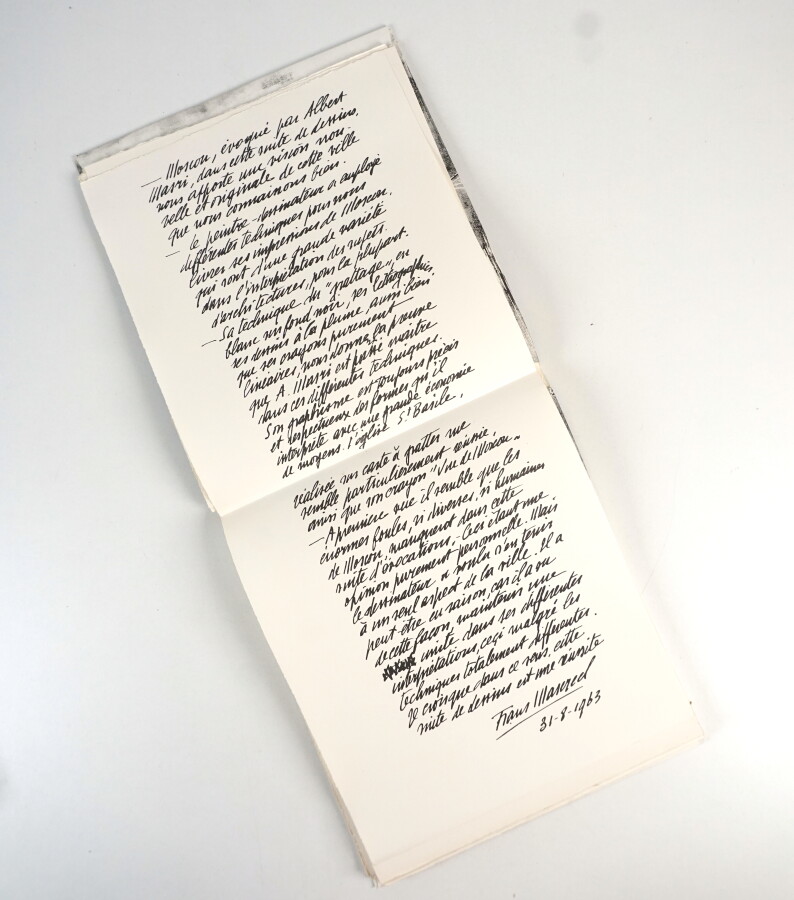 — Moscou, évoqué par Albert
Masri, dans cette suite de dessins,
nous apporte une vision nou-
velle et originale de cette ville
que nous connaissons bien.
— Le peintre-dessinateur a employé
différentes techniques pour nous
livrer ses impressions de Moscou,
qui sont d'une grande variété
dans l'interprétation des sujets.
d'architectures, pour la plupart.
— Sa technique du "grattage", en
blanc sur fond noir, ses lithographies,
ses dessins à la plume, aussi bien
que ses crayons purement
linéaires, nous donnent la preuve
que A. Masri est passé maître
dans ces différentes techniques.
Son graphisme est toujours précis
et respectueux des formes qu'il
interprète avec une grande économie
de moyens. l'église St Basile,
réalisée sur carte à gratter me
semble particulièrement réussie,
ainsi que son crayon "Vue de Moscou".
— A première vue il semble que les
énormes foules, si diverses, si humaines
de Moscou, manquent dans cette
suite d'évocations, - Ceci étant une
opinion purement personnelle. Mais
le dessinateur a voulu s'en tenir
à un seul aspect de la ville. Il a
peut-être eu raison, car il a su
de cette façon, maintenir une
unité dans ses différentes
interprétations, ceci malgré les
techniques totalement différentes.
Je crois que dans ce sens, cette
suite de dessins est une réussite
Frans Masereel
31-8-1963